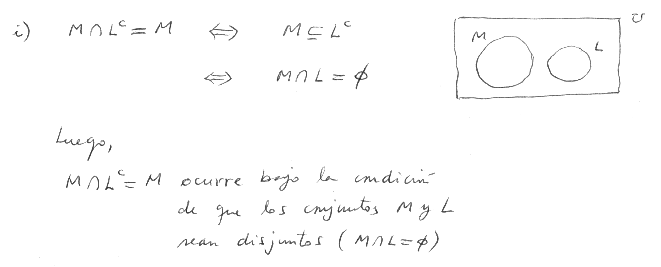 i) M ∩ Lᶜ = M ⇔ M ⊆ Lᶜ
⇔ M ∩ L = ϕ
M L U
Luego,
M ∩ Lᶜ = M ocurre bajo la condición
de que los conjuntos M y L
sean disjuntos (M ∩ L = ϕ)